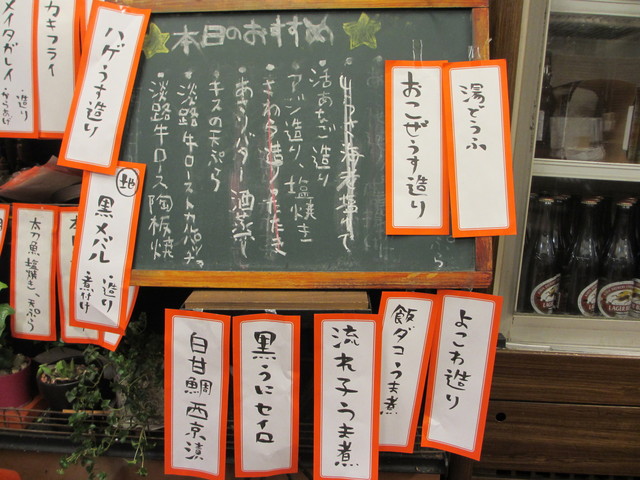 本日のおすすめ
活あなご造り
アジ造り、塩焼き
さわら造り、たたき
あさりバター 酒蒸し
キスの天ぷら
淡路牛ロースト カルパッチョ
淡路牛ロース陶板焼
湯どうふ
おこぜうす造り
カキフライ
メイタガレイ
・造り
・からあげ
ハゲうす造り
地
黒メバル
・造り
・煮付け
太刀魚塩焼き、天ぷら
よこわ造り
飯ダコうま煮
流れ子うま煮
黒うにセイロ
白甘鯛西京漬
LAGER